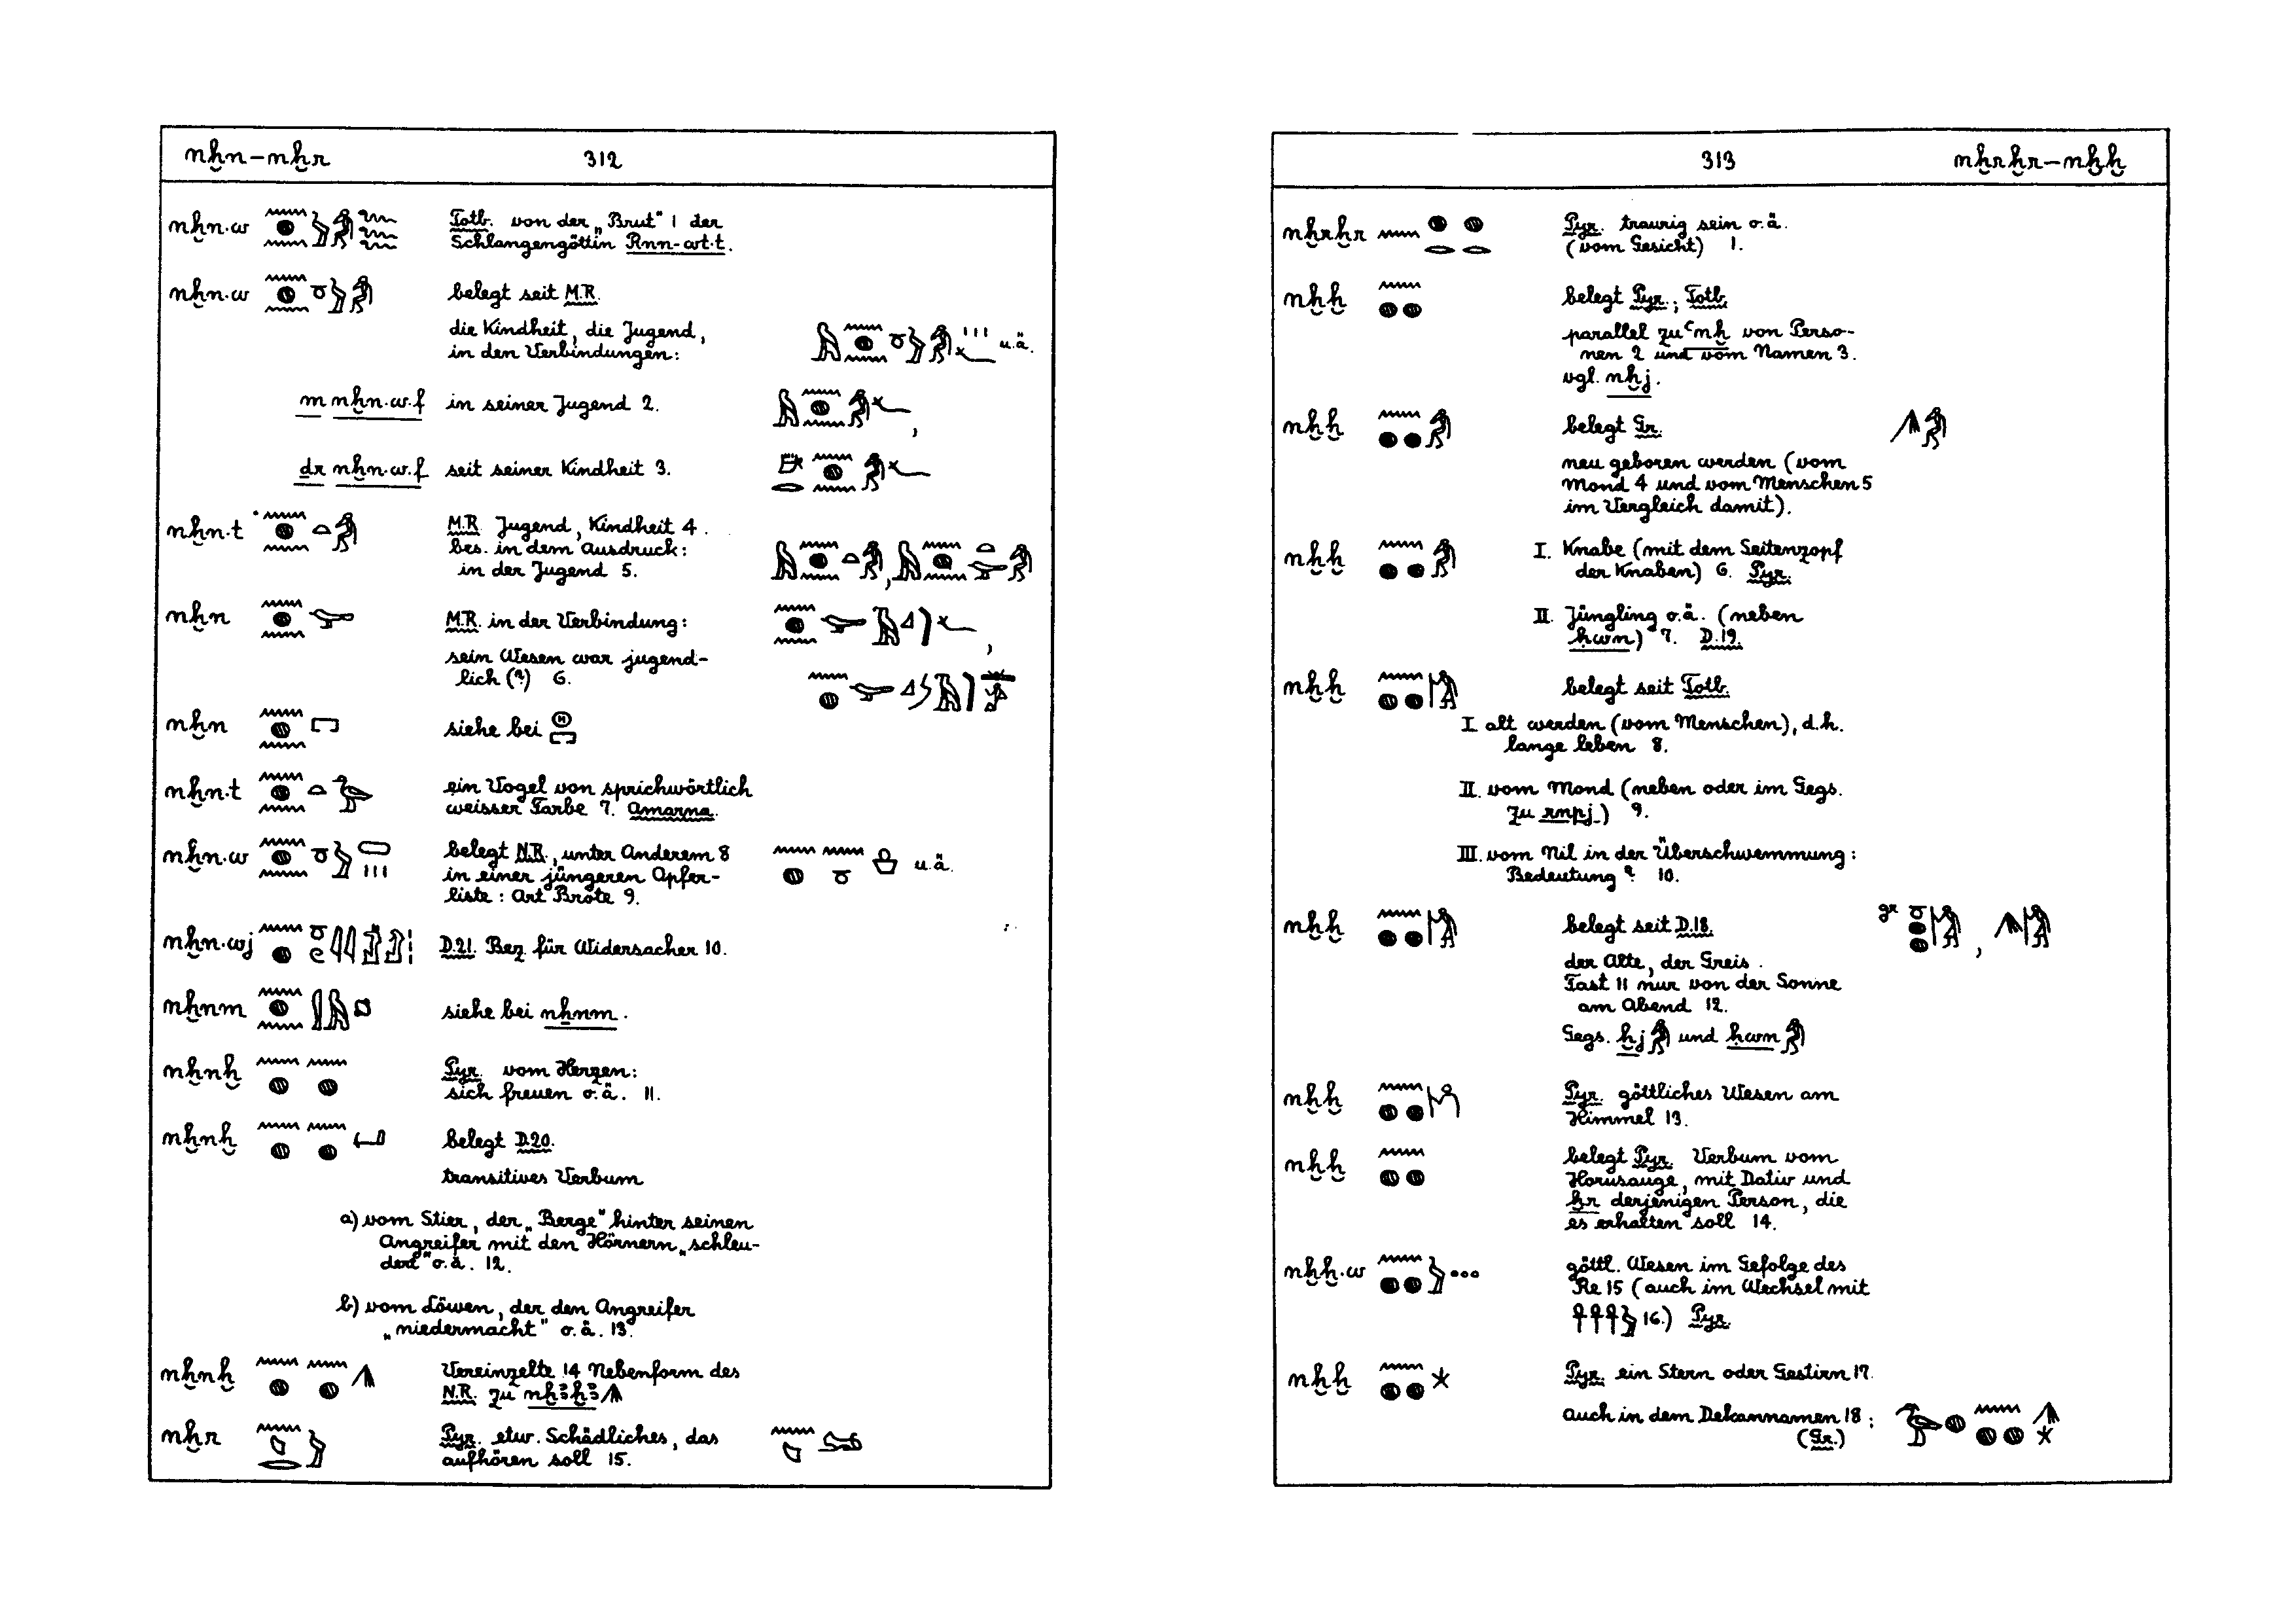 nḫn – nḫr 312
nḫn·w Totb. von der „Brut" 1 der
Schlangengöttin Rnn-wt·t.
nḫn·w belegt seit M.R.
die Kindheit, die Jugend,
in den Verbindungen: u.ä.
m nḫn·w·f in seiner Jugend 2.
dr nḫn·w·f seit seiner Kindheit 3.
nḫn·t M.R. Jugend, Kindheit 4.
bes. in dem Ausdruck:
in der Jugend 5.
nḫn M.R. in der Verbindung:
sein Wesen war jugend-
lich (?) 6.
nḫn siehe bei
nḫn·t ein Vogel von sprichwörtlich
weisser Farbe 7. Amarna.
nḫn·w belegt N.R., unter Anderem 8
in einer jüngeren Opfer-
liste: Art Brote 9. u.ä.
nḫn·wj D.21. Bez. für Widersacher 10.
nḫnm siehe bei nẖnm.
nḫnḫ Pyr. vom Herzen:
sich freuen o.ä. 11.
nḫnḫ belegt D.20.
transitives Verbum
a) vom Stier, der „Berge" hinter seinen
Angreifer mit den Hörnern „schleu-
dert" o.ä. 12.
b) vom Löwen, der den Angreifer
„niedermacht" o.ä. 13.
nḫnḫ Vereinzelte 14 Nebenform des
N.R. zu nḫꜣḫꜣ
nḫr Pyr. etw. Schädliches, das
aufhören soll 15.
313 nḫrḫr – nḫḫ
nḫrḫr Pyr. traurig sein o.ä.
(vom Gesicht) 1.
nḫḫ belegt Pyr.; Totb.
parallel zu ꜥnḫ von Perso-
nen 2 und vom Namen 3.
vgl. nḫj.
nḫḫ belegt Gr.
neu geboren werden (vom
Mond 4 und vom Menschen 5
im Vergleich damit).
nḫḫ I. Knabe (mit dem Seitenzopf
der Knaben) 6. Pyr.
II. Jüngling o.ä. (neben
ḥwn) 7. D.19.
nḫḫ belegt seit Totb.
I. alt werden (vom Menschen), d.h.
lange leben 8.
II. vom Mond (neben oder im Gegs.
zu rnpj) 9.
III. vom Nil in der Überschwemmung:
Bedeutung? 10.
nḫḫ belegt seit D.18. gr
der Alte, der Greis.
Fast 11 nur von der Sonne
am Abend 12.
Gegs. ḫj und ḥwn
nḫḫ Pyr. göttliches Wesen am
Himmel 13.
nḫḫ belegt Pyr. Verbum vom
Horusauge, mit Dativ und
ḫr derjenigen Person, die
es erhalten soll 14.
nḫḫ·w göttl. Wesen im Gefolge des
Re 15 (auch im Wechsel mit
16.) Pyr.
nḫḫ Pyr. ein Stern oder Gestirn 17.
auch in dem Dekannamen 18:
(Gr.)